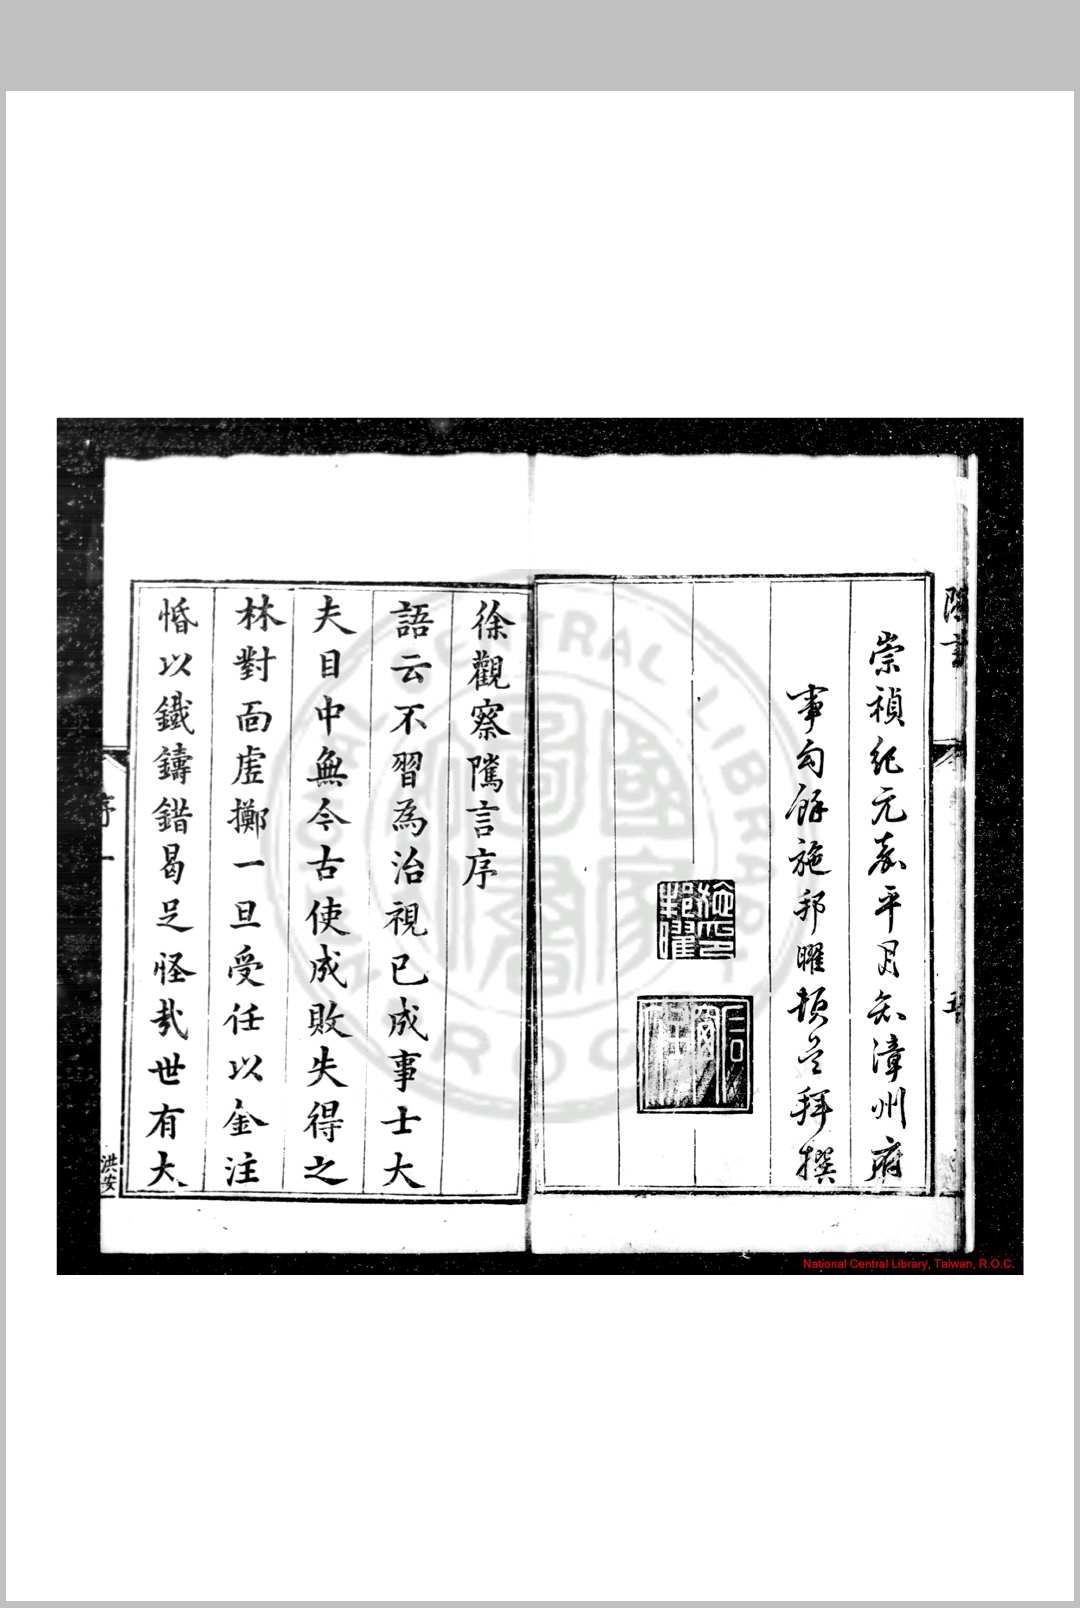 崇禎紀元嘉平月知漳州府
事勾餘施邦曜頓首拜撰
施邦曜印
徐觀察隲言序
語云不習為治視已成事士大
夫目中無今古使成敗失得之
林對面虛擲一旦受任以金注
惛以鐵鑄錯曷足怪哉世有大
序
一
洪安
National Central Library, Taiwan, R.O.C.